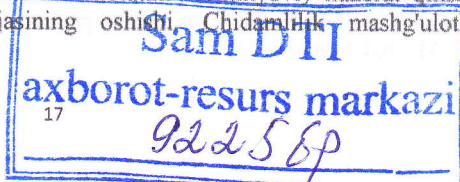 jasining oshishi. Chidamlilik mashg'ulot
Sam DTI
axborot-resurs markazi
17